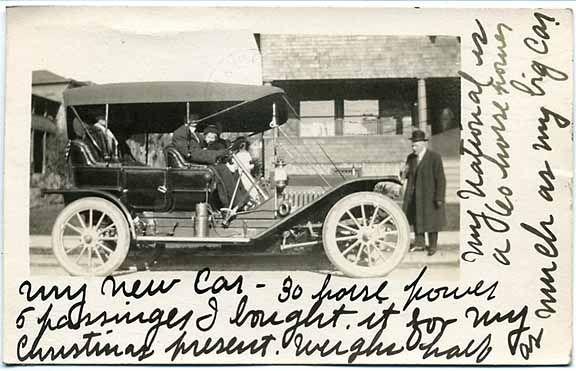 my new Car - 30 horse power
5 passinger I bought it for my
Christmas present. weighs half
as much as my big Car.
my National is
a 60 horse power